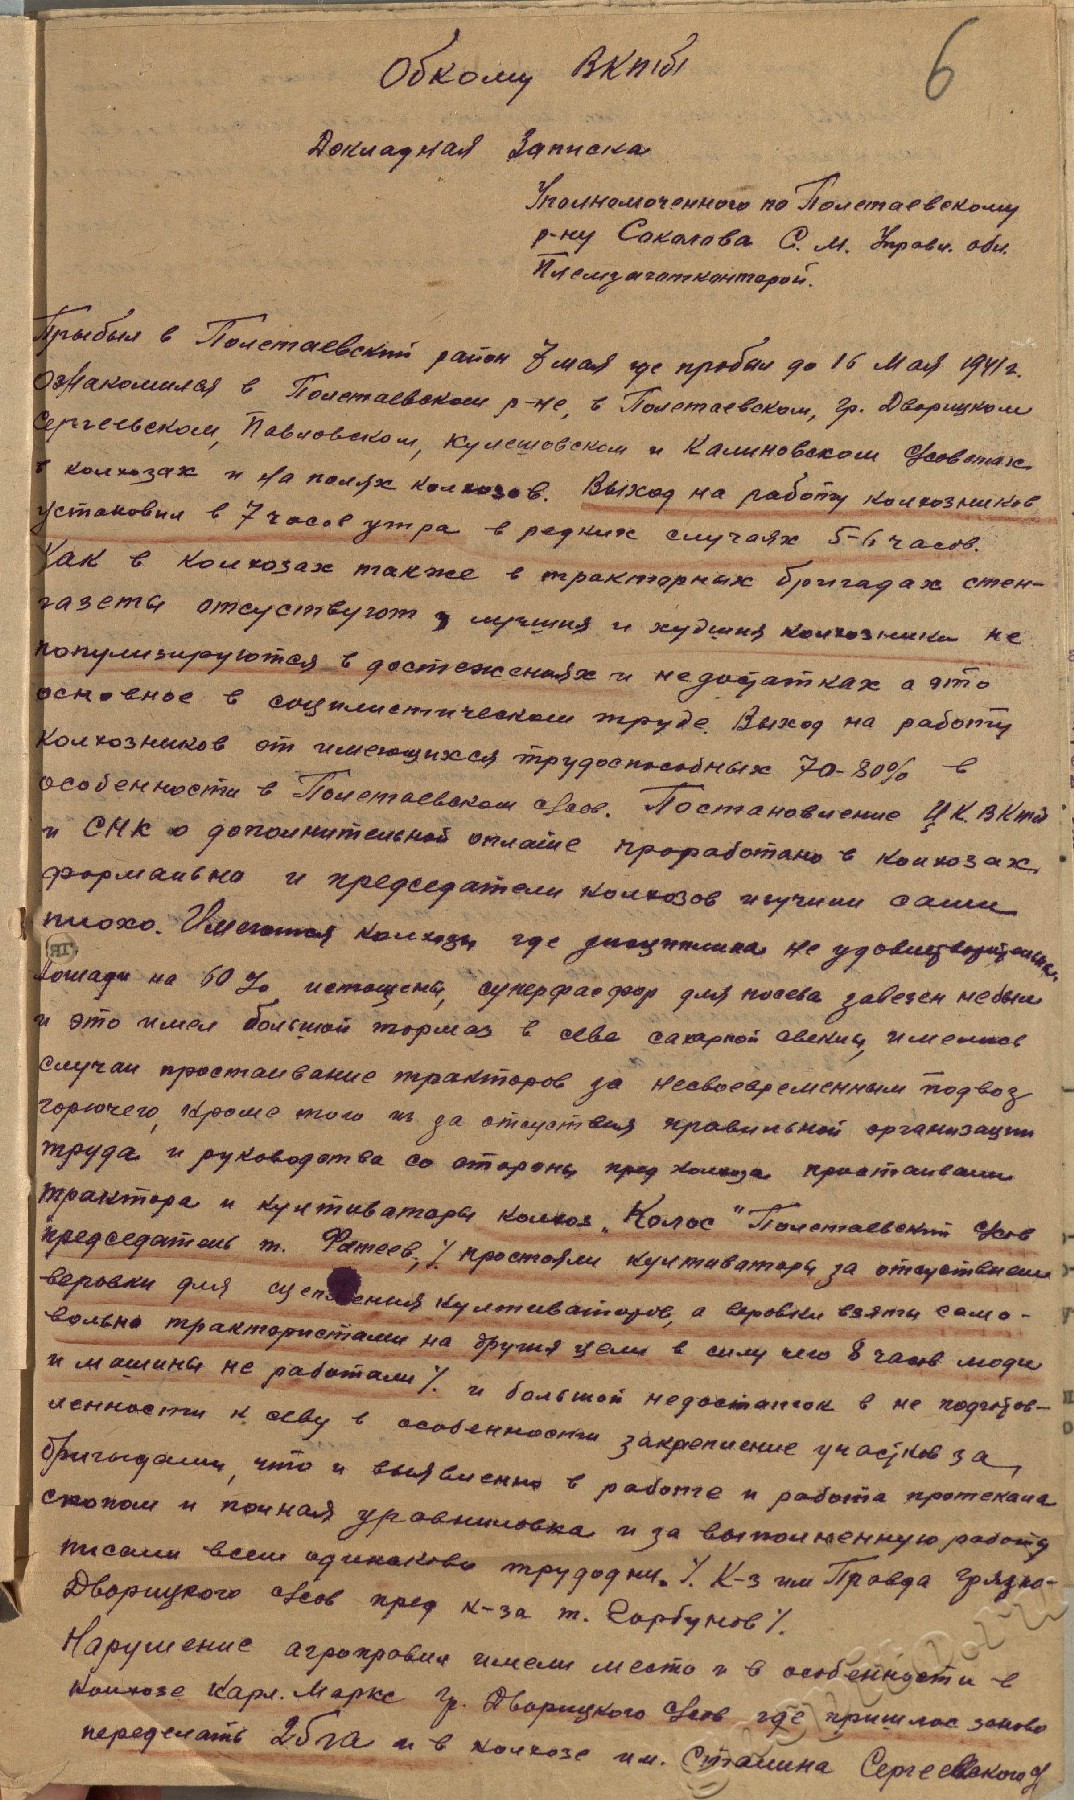 6
Обкому ВКП(б)
Докладная Записка
Уполномоченного по Полетаевскому
р-ну Сокалова С. М. Управл. обл.
Племзаготконторой.
Прыбыл в Полетаевский район 7 мая где пробыл до 16 мая 1941 г.
Ознакомился в Полетаевском р-не, в Полетаевском, Гр. Дворицком
Сергеевском, Павловском, Кулешовском и Калиновском с/советах
в колхозах и на полях колхозов. Выход на работу колхозников
установил в 7 часов утра в редких случаях 5-6 часов.
Как в колхозах также в тракторных бригадах стен-
газеты отсуствуют и лучшия и худшия колхозники не
популизируются в достежениях и недостатках а это
основное в социлистическом труде. Выход на работу
колхозников от имеющихся трудоспособных 70-80% в
особенности в Полетаевском с/сов. Постановление ЦК ВКПб
и СНК о дополнительной оплате проработано в колхозах
формально и председатели колхозов изучили сами
плохо. Имеются колхозы где дисциплина не удовлетворительна.
Лошади на 60% истощены, суперфасфор для посева завезен небыл
и это имел большой тормаз в севе сахарной свеклы, имелись
случаи простаивание тракторов за несвоевременным подвоз
горючего, кроме того из за отсуствия правильной организации
труда и руководства со стороны пред колхоза простаивали
трактора и култиваторы колхоз „Колос" Полетаевский с/сов
председатель т. Фатеев, /. простояли култиваторы за отсутствием
веровки для сцепления култиваторов, а веровки взяты само-
вольно трактористами на другия цели в силу чего 8 часов люди
и машины не работали /. и большой недостаток в не подготов-
ленности к севу в особенности закрепление участков за
бригадами, что и выявленно в работе и работа протекала
скопом и полная уравниловка и за выполненную работу
писали всем одинаково трудодни. /. К-з им Правда Грязно-
Дворицкого с/сов пред к-за т. Горбунов /.
Нарушение агроправил имели место и в особенности в
колхозе Карл. Маркс Гр. Дворицкого с/сов где пришлос заново
переделать 25 га и в колхозе им. Сталина Сергеевского с/